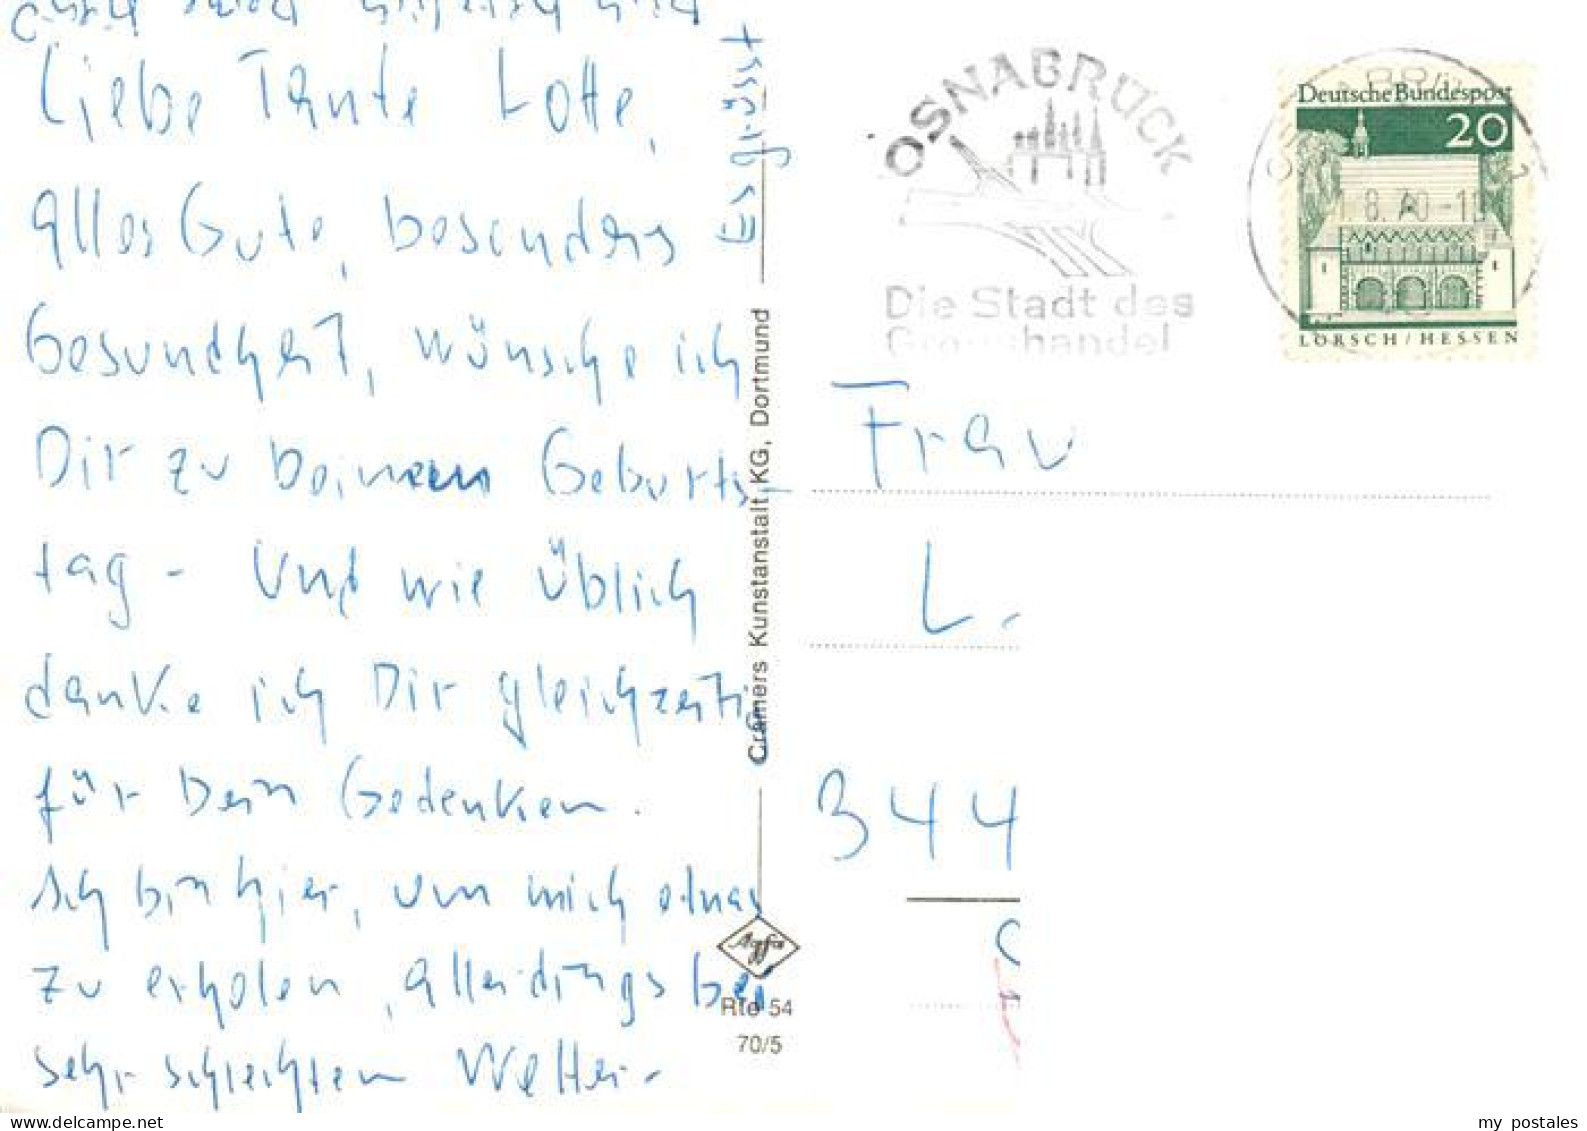 Liebe Tante Lotte,
alles Gute, besonders
Gesundheit, wünsche ich
Dir zu Deinem Geburts-
tag - Und wie üblich
danke ich Dir gleichzeitig
für Dein Gedenken.
Ich bin hier, um mich etwas
zu erholen, allerdings bei
sehr schlechtem Wetter -
Es grüsst
Cramers Kunstanstalt KG, Dortmund
Agfa
Rto 54
70/5
OSNABRÜCK
Die Stadt des
Grosshandel
1.8.70-1
Deutsche Bundespost
20
LORSCH/HESSEN
Frau
L.
344
my postales